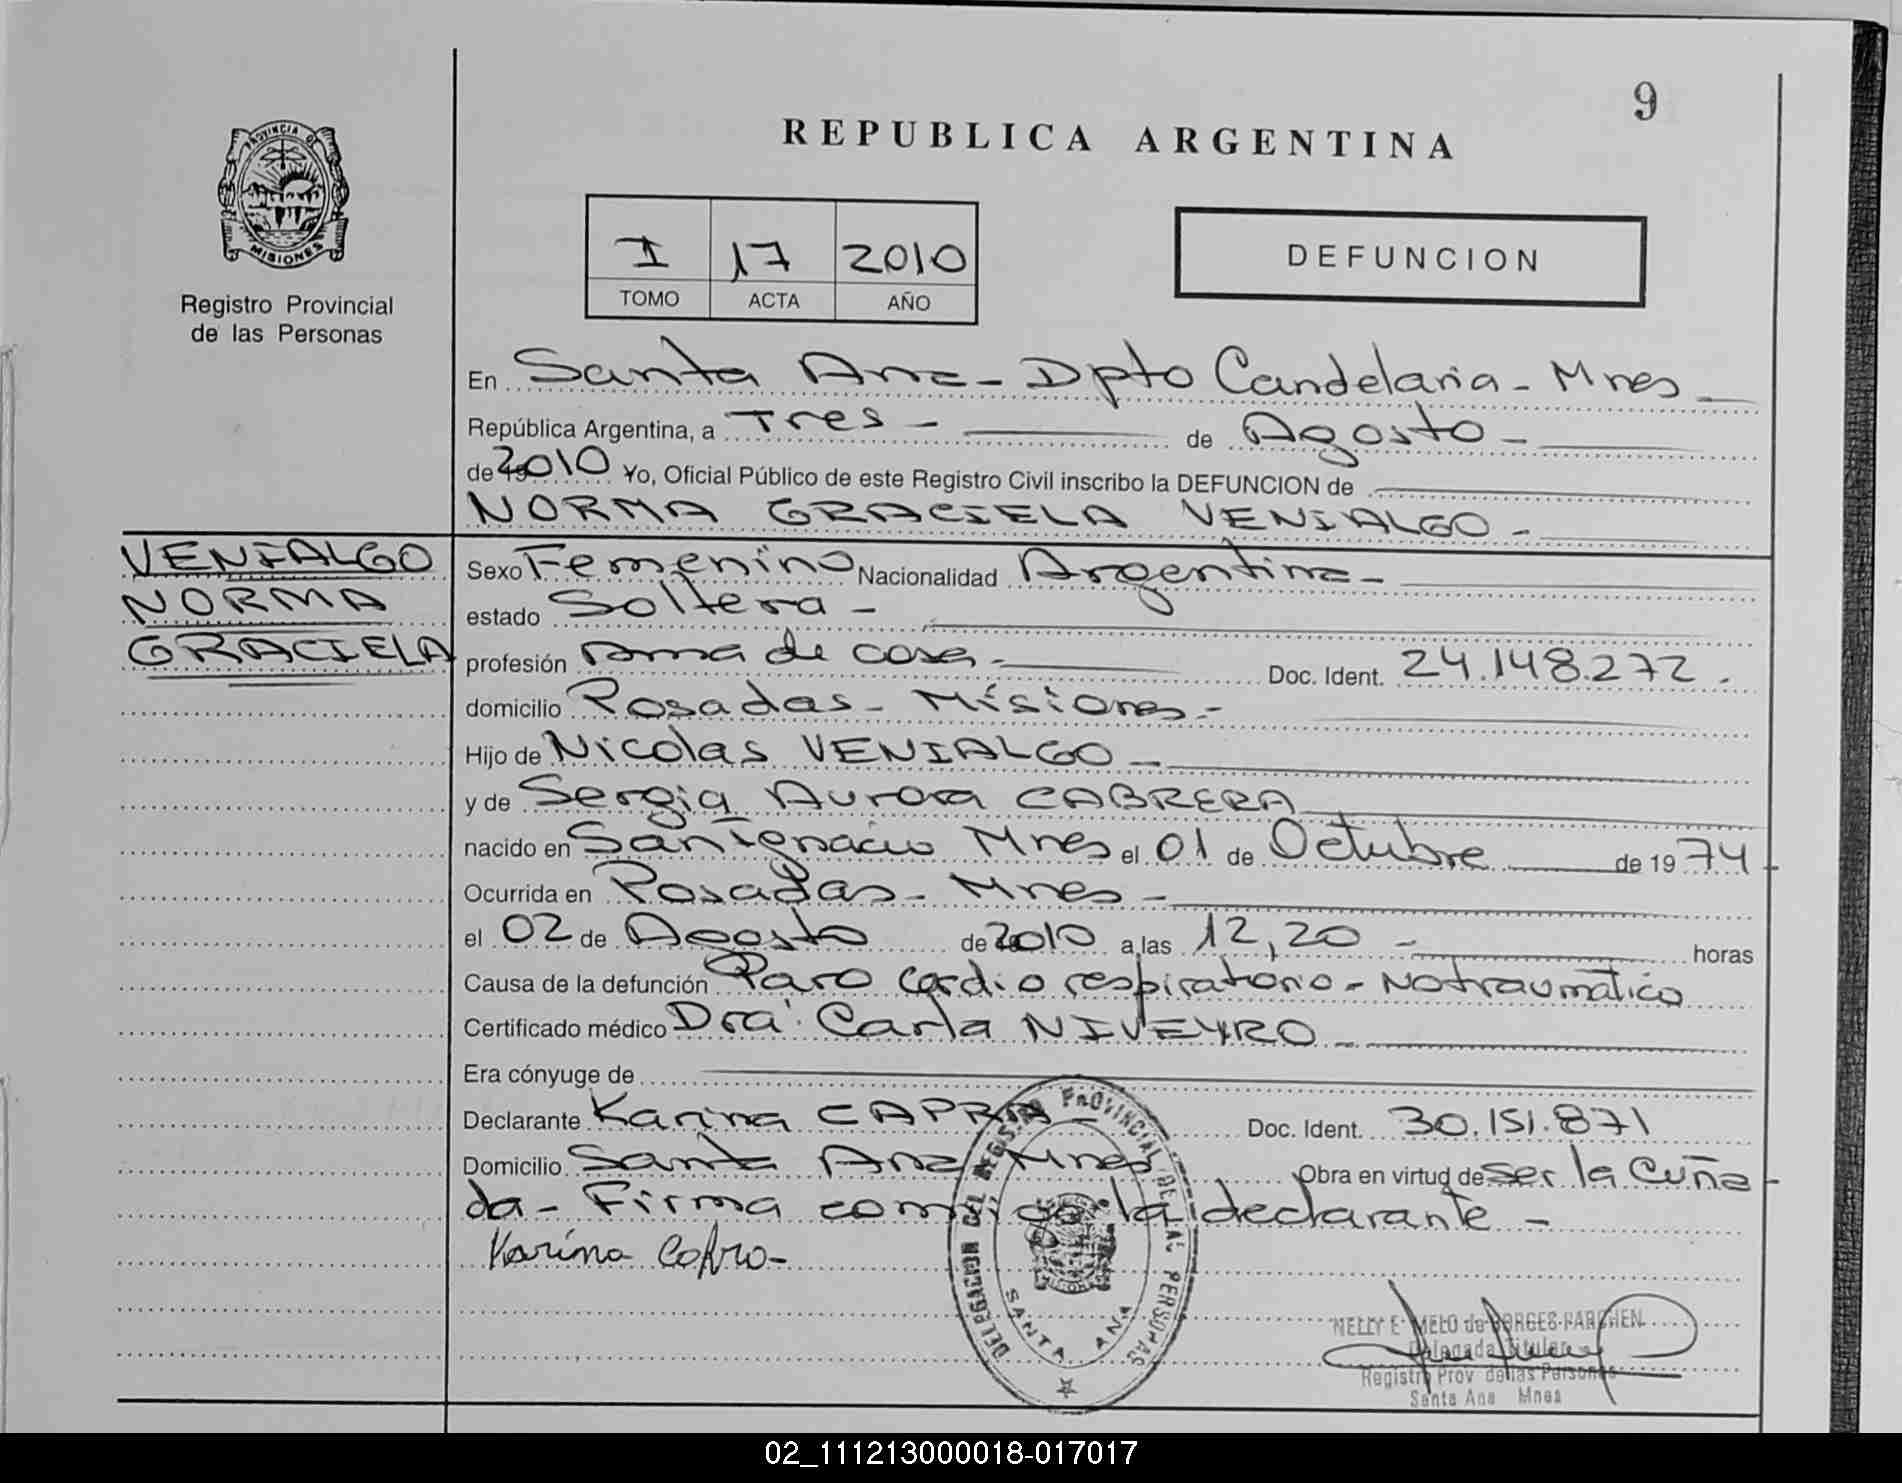 9
REPUBLICA ARGENTINA
PROVINCIA DE
MISIONES
Registro Provincial
de las Personas
I 17 2010
TOMO ACTA AÑO
DEFUNCION
En Santa Ana - Dpto Candelaria - Mnes
República Argentina, a Tres - de Agosto -
de 2010 Yo, Oficial Público de este Registro Civil inscribo la DEFUNCION de
NORMA GRACIELA VENIALGO -
VENIALGO
NORMA
GRACIELA
Sexo Femenino Nacionalidad Argentina -
estado Soltera -
profesión Ama de casa - Doc. Ident. 24.148.272.
domicilio Posadas - Misiones -
Hijo de Nicolas VENIALGO -
y de Sergia Aurora CABRERA
nacido en San Ignacio Mnes el 01 de Octubre de 1974 -
Ocurrida en Posadas - Mnes -
el 02 de Agosto de 2010 a las 12,20 - horas
Causa de la defunción Paro cardio respiratorio - No traumático
Certificado médico Dra. Carla NIVEYRO -
Era cónyuge de
Declarante Karina - Doc. Ident. 30.151.871
Domicilio Santa Ana Mnes Obra en virtud de ser la Cuña
da - Firma conmigo la declarante -
Karina
DELEGACION DEL REGISTRO PROVINCIAL DE LAS PERSONAS
SANTA ANA
NELLY E. MELO de BORGES PARCHEN
Delegada Titular
Registro Prov de las Personas
Santa Ana Mnes
02_111213000018-017017